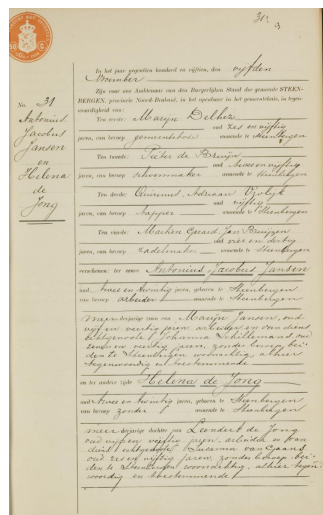 No. 31
Antonius
Jacobus
Jansen
en
Helena
de
Jong
In het jaar negentien honderd en vijftien, den vijfden
November
Zijn voor ons Ambtenaar van den Burgerlijken Stand der gemeente STEEN-
BERGEN, provincie Noord-Brabant, in het openbaar in het gemeentehuis, in tegen-
woordigheid van:
Ten eerste: Marijn Delhez
oud zes en vijftig
jaren, van beroep gemeentebode woonende te Steenbergen
Ten tweede: Pieter de Bruijn
oud en vijftig
jaren, van beroep schoenmaker woonende te Steenbergen
Ten derde: Adriaan
oud vijftig
jaren, van beroep tapper woonende te Steenbergen
Ten vierde: Gerard Jan
oud vier en dertig
jaren, van beroep zadelmaker woonende te Steenbergen
verschenen: ter eenre Antonius Jacobus Jansen
oud twee en twintig jaren, geboren te Steenbergen
van beroep arbeider woonende te Steenbergen
meerderjarige zoon van Marijn Jansen, oud
vijf en veertig jaren, arbeider en van diens
echtgenoote Johanna Schillemans oud
zeven en veertig jaren, zonder beroep, bei-
den te Steenbergen woonachtig, alhier
tegenwoordig en toestemmende
en ter andere zijde Helena de Jong
oud twee en twintig jaren, geboren te Steenbergen
van beroep zonder woonende te Steenbergen
meerderjarige dochter van Leendert de Jong
oud vijf en vijftig jaren, arbeider en van
diens echtgenoote van
oud zes en vijftig jaren, zonder beroep, bei-
den te Steenbergen woonachtig, alhier tegen-
woordig en toestemmende